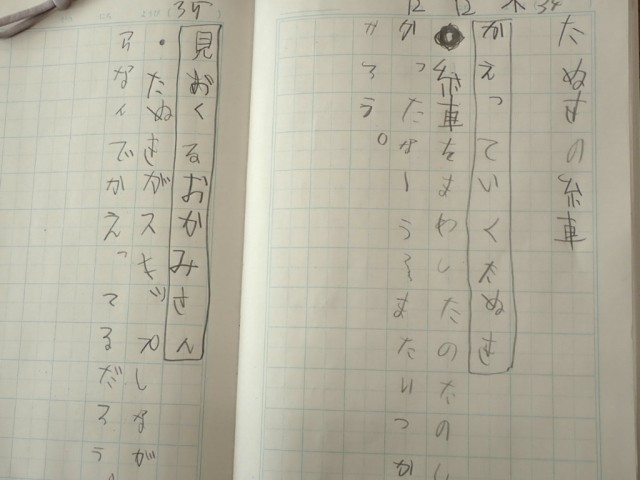 たぬきの糸車
かえっていくたぬき
糸車をまわしたのたのし
かったなーうふまたいつか
やろう。
見おくるおかみさん
・たぬきがスキップしなが
らなんでかえってるだろう